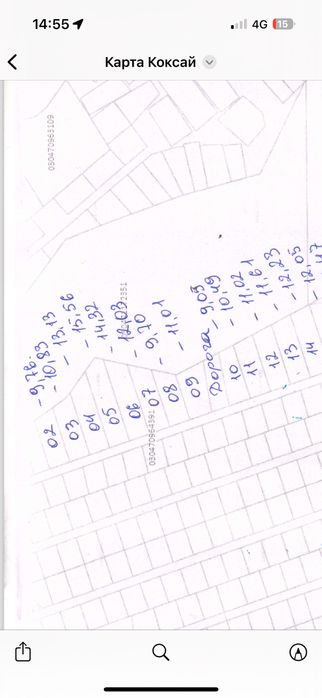 14:55
4G
15
Карта Коксай
030470963109
02 - 9,78.
03 - 10,83
04 - 13,13
05 - 15,56
06 - 14,32
07 - 12,03
08 - 9,70
09 - 11,01
Дорога - 9,05
10 - 10,49
11 - 11,02
12 - 11,61
13 - 12,23
14 - 12,05
030470964391